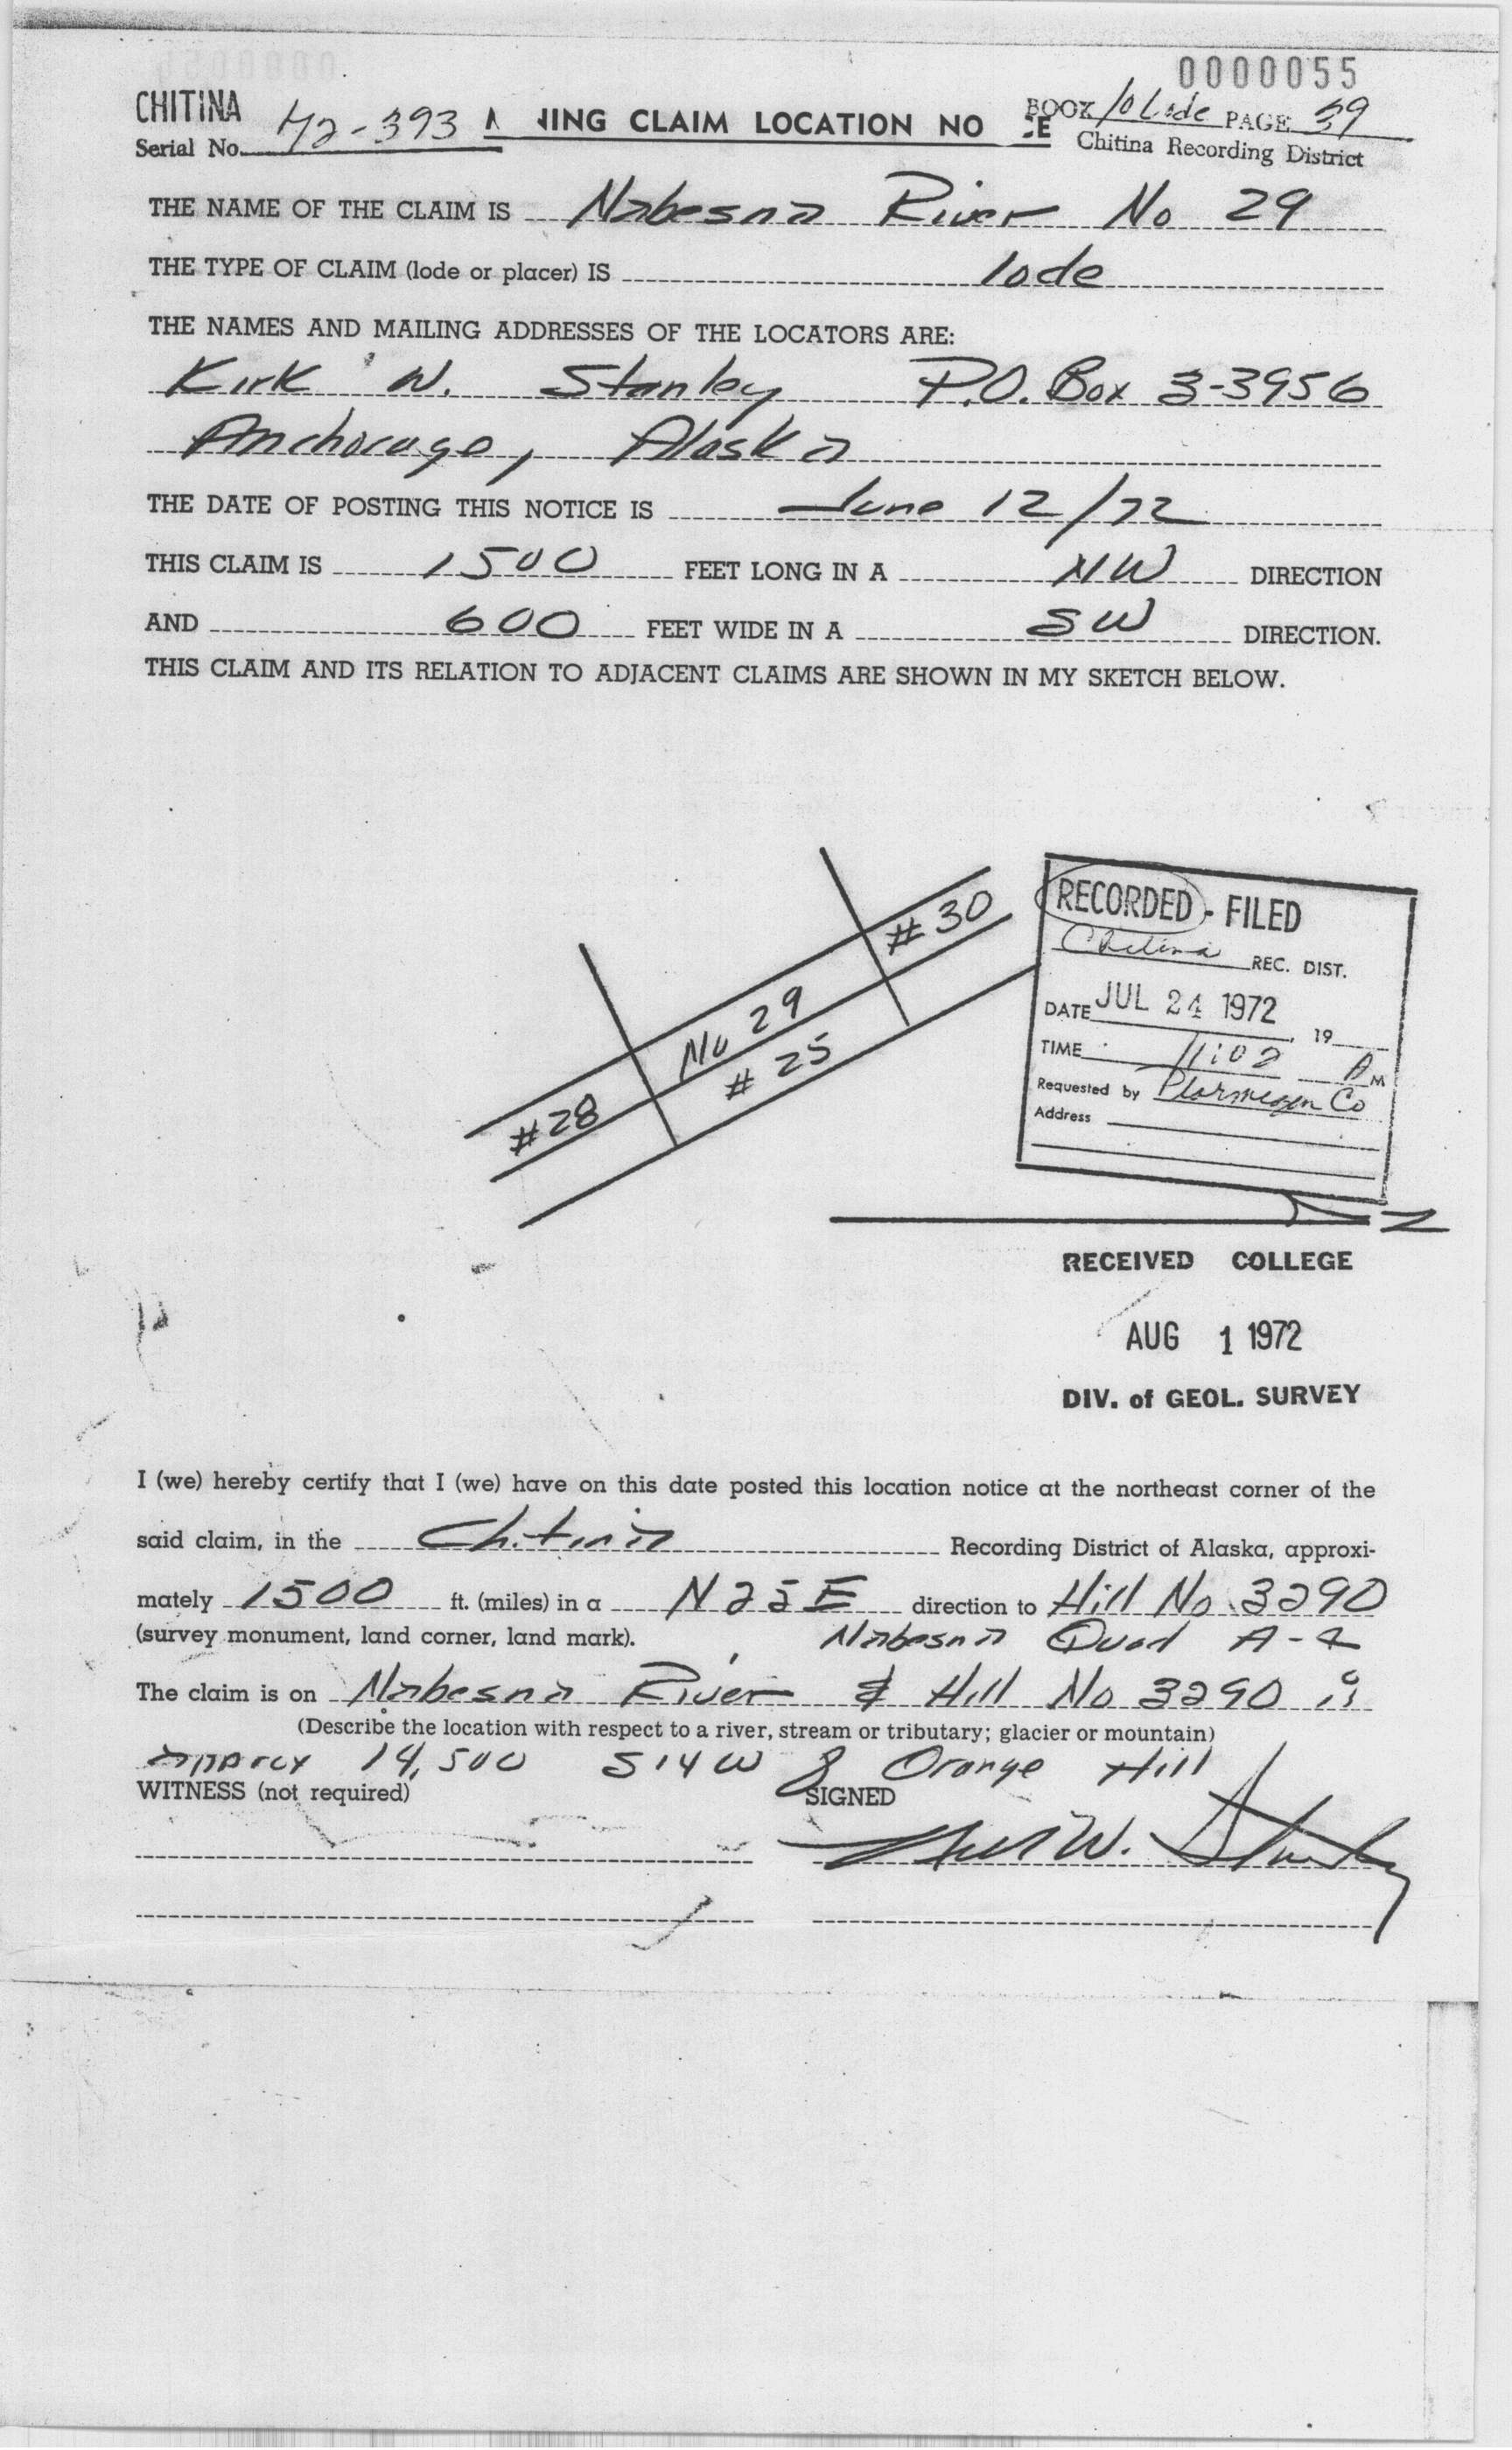 0000055
CHITINA
Serial No. 72-393 MINING CLAIM LOCATION NO CE BOOK 10 Lode PAGE 39
Chitina Recording District
THE NAME OF THE CLAIM IS Nabesna River No 29
THE TYPE OF CLAIM (lode or placer) IS lode
THE NAMES AND MAILING ADDRESSES OF THE LOCATORS ARE:
Kirk W. Stanley P.O. Box 3-3956
Anchorage, Alaska
THE DATE OF POSTING THIS NOTICE IS June 12/72
THIS CLAIM IS 1500 FEET LONG IN A NW DIRECTION
AND 600 FEET WIDE IN A SW DIRECTION.
THIS CLAIM AND ITS RELATION TO ADJACENT CLAIMS ARE SHOWN IN MY SKETCH BELOW.
# 30
No 29
# 25
#28
RECORDED - FILED
Chitina REC. DIST.
DATE JUL 24 1972 19
TIME 11:02 A M
Requested by Ptarmigan Co
Address
N
RECEIVED COLLEGE
AUG 1 1972
DIV. of GEOL. SURVEY
I (we) hereby certify that I (we) have on this date posted this location notice at the northeast corner of the
said claim, in the Chitina Recording District of Alaska, approxi-
mately 1500 ft. (miles) in a N25E direction to Hill No 3290
(survey monument, land corner, land mark). Nabesna Quad A-4
The claim is on Nabesna River & Hill No 3290 is
(Describe the location with respect to a river, stream or tributary; glacier or mountain)
approx 14,500 S14W of Orange Hill
WITNESS (not required) SIGNED
Kirk W. Stanley